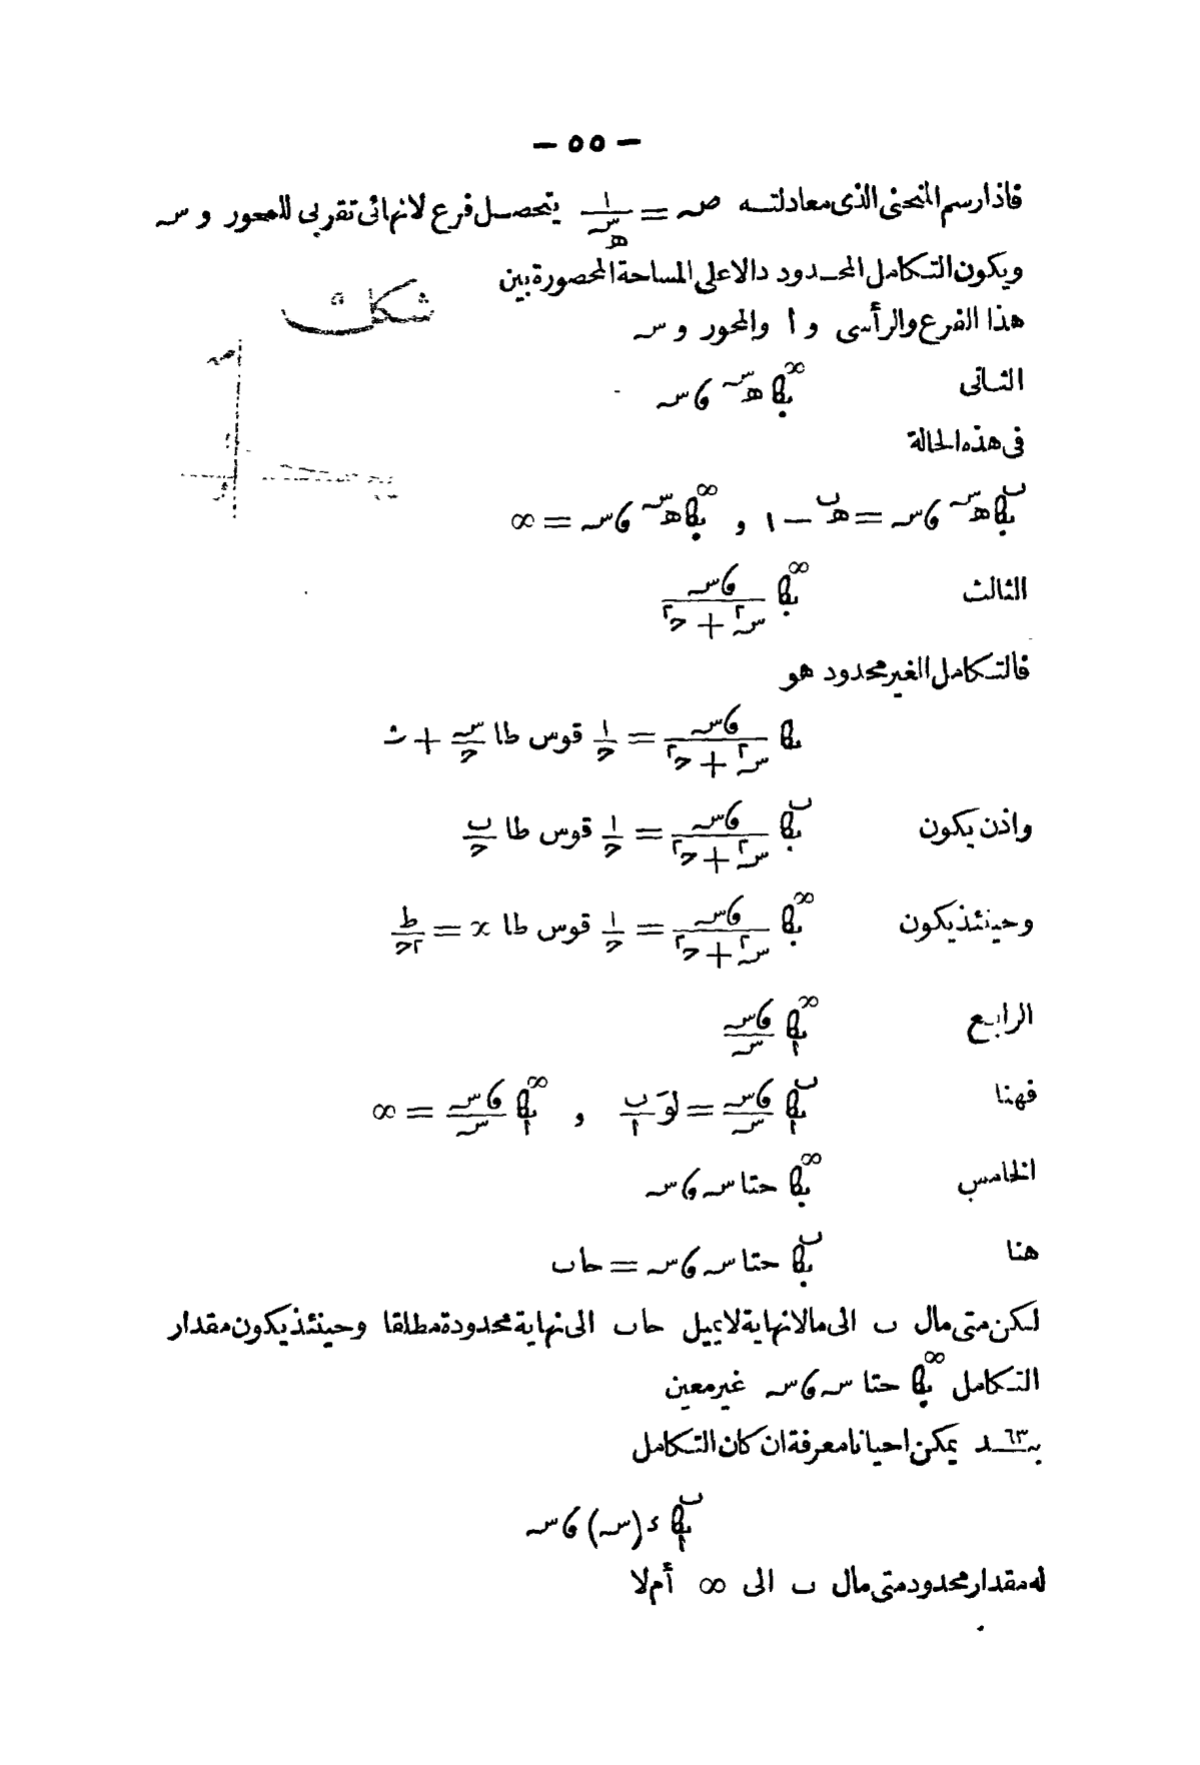 — ٥٥ —
فاذا رسم المنحنى الذى معادلته ص = ١/هـ^س يتحصل فرع لانهائى تقربى للمحور و س
ويكون التكامل المحدود دالا على المساحة المحصورة بين
شكل ٥
هذا الفرع والرأسى و ا والمحور و س
الثانى ∫_٠^∞ هـ^س ءس
فى هذه الحالة
∫_٠^ب هـ^س ءس = هـ^ب − ١ و ∫_٠^∞ هـ^س ءس = ∞
الثالث ∫_٠^∞ ءس/(س٢ + ح٢)
فالتكامل الغير محدود هو
∫ ءس/(س٢ + ح٢) = ١/ح قوس طا س/ح + ث
واذن يكون ∫_٠^ب ءس/(س٢ + ح٢) = ١/ح قوس طا ب/ح
وحينئذ يكون ∫_٠^∞ ءس/(س٢ + ح٢) = ١/ح قوس طا ∞ = ط/٢ح
الرابع ∫_١^∞ ءس/س
فهنا ∫_١^ب ءس/س = لوَ ب/١ , ∫_١^∞ ءس/س = ∞
الخامس ∫_٠^∞ حتا س ءس
هنا ∫_٠^ب حتا س ءس = حا ب
لكن متى مال ب الى مالانهاية لا يميل حا ب الى نهاية محدودة مطلقا وحينئذ يكون مقدار
التكامل ∫_٠^∞ حتا س ءس غير معين
بند ٦٣ يمكن احيانا معرفة ان كان التكامل
∫_١^ب د(س) ءس
له مقدار محدود متى مال ب الى ∞ أم لا